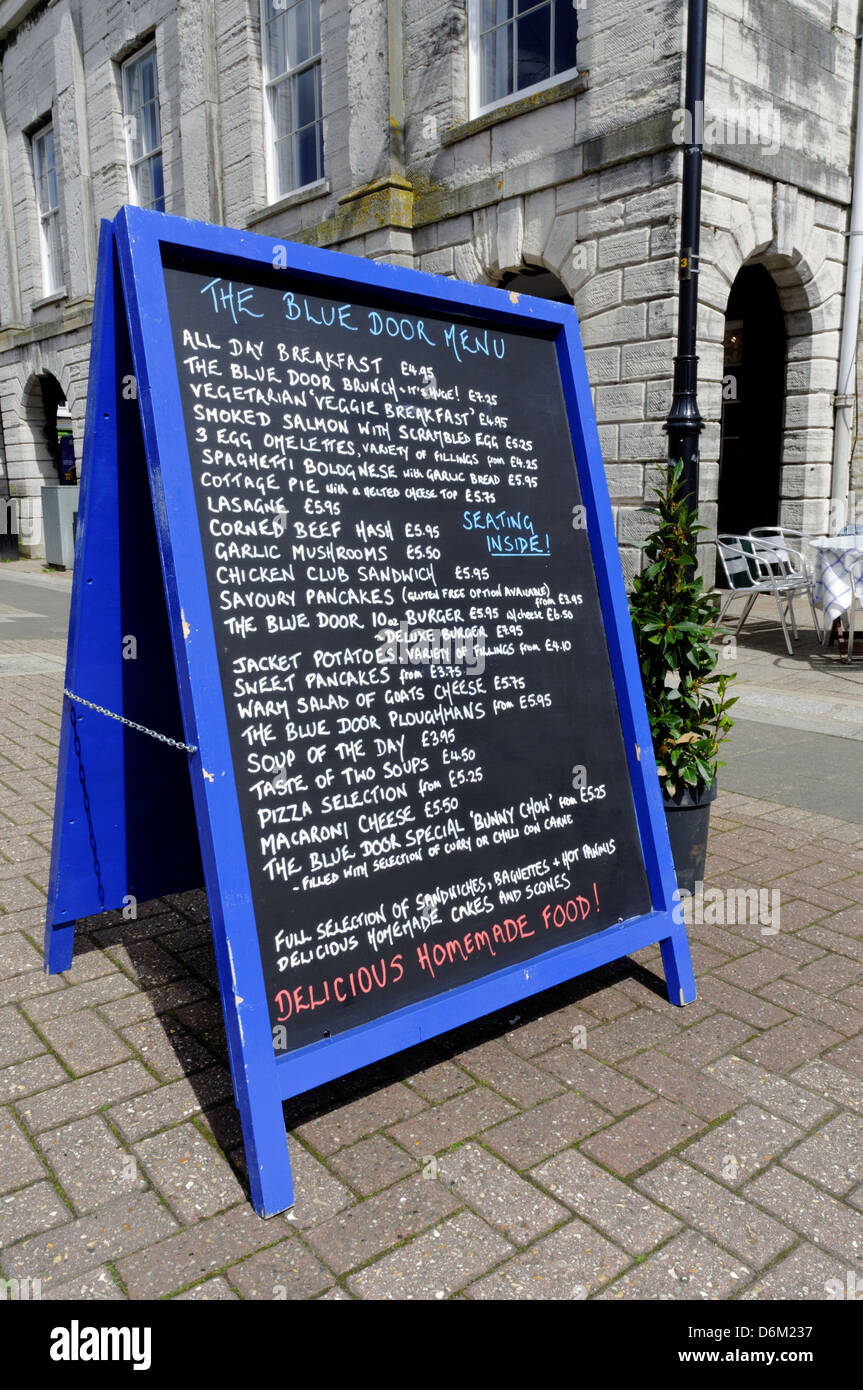 THE BLUE DOOR MENU
ALL DAY BREAKFAST £4.95
THE BLUE DOOR BRUNCH - IT'S HUGE! £7.25
VEGETARIAN 'VEGGIE BREAKFAST' £4.95
SMOKED SALMON WITH SCRAMBLED EGG £5.25
3 EGG OMELETTES, VARIETY OF FILLINGS from £4.25
SPAGHETTI BOLOGNESE with GARLIC BREAD £5.95
COTTAGE PIE with a MELTED CHEESE TOP £5.75
LASAGNE £5.95
CORNED BEEF HASH £5.95
SEATING
INSIDE!
GARLIC MUSHROOMS £5.50
CHICKEN CLUB SANDWICH £5.95
SAVOURY PANCAKES (GLUTEN FREE OPTION AVAILABLE) from £3.95
THE BLUE DOOR 10oz BURGER £5.95 w/cheese £6.50
- DELUXE BURGER £7.95
JACKET POTATOES, VARIETY OF FILLINGS from £4.10
SWEET PANCAKES from £3.75
WARM SALAD OF GOATS CHEESE £5.75
THE BLUE DOOR PLOUGHMANS from £5.95
SOUP OF THE DAY £3.95
TASTE OF TWO SOUPS £4.50
PIZZA SELECTION from £5.25
MACARONI CHEESE £5.50
THE BLUE DOOR SPECIAL 'BUNNY CHOW' from £5.25
- FILLED WITH SELECTION OF CURRY OR CHILLI CON CARNE
FULL SELECTION OF SANDWICHES, BAGUETTES + HOT PANINIS
DELICIOUS HOMEMADE CAKES AND SCONES
DELICIOUS HOMEMADE FOOD!
alamy
alamy
Image ID: D6M237
www.alamy.com